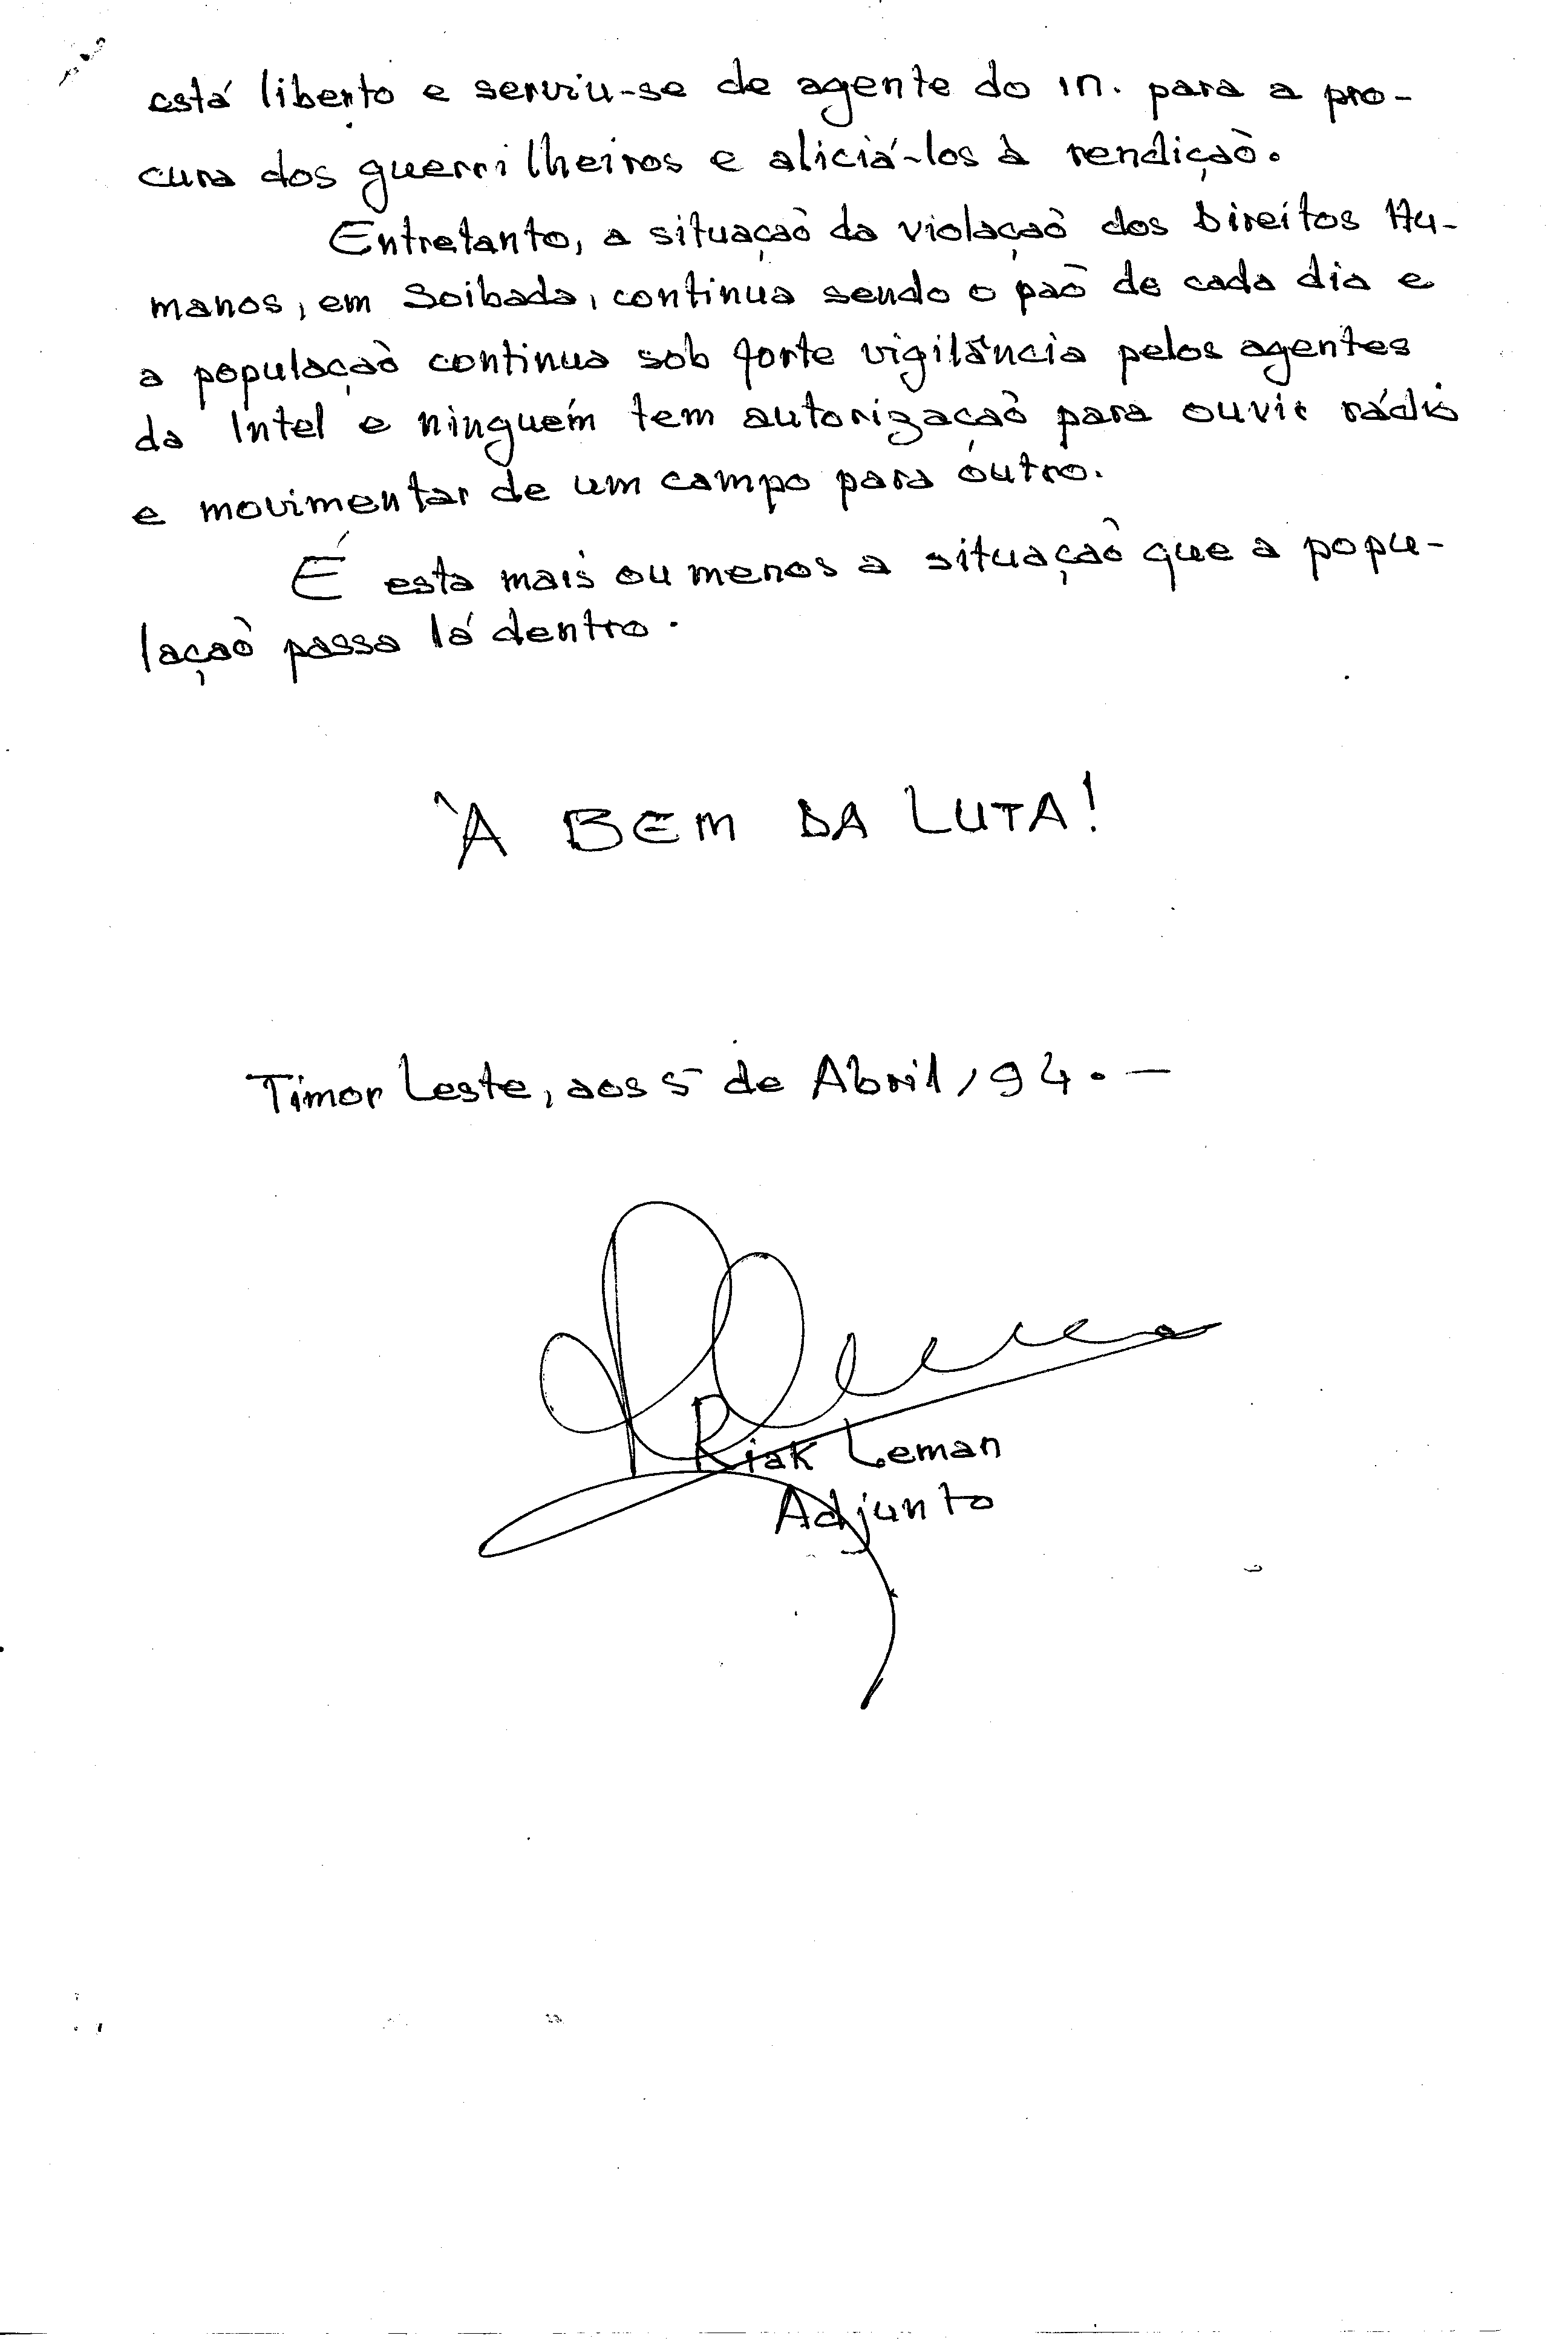 está liberto e serviu-se de agente do in. para a pro-
cura dos guerrilheiros e aliciá-los à rendição.
Entretanto, a situação da violação dos Direitos Hu-
manos, em Soibada, continua sendo o pão de cada dia e
a população continua sob forte vigilância pelos agentes
da Intel e ninguém tem autorização para ouvir rádio
e movimentar de um campo para outro.
É esta mais ou menos a situação que a popu-
lação passa lá dentro.
À BEM DA LUTA!
Timor Leste, aos 5 de Abril, 94. —
Riak Leman
Adjunto